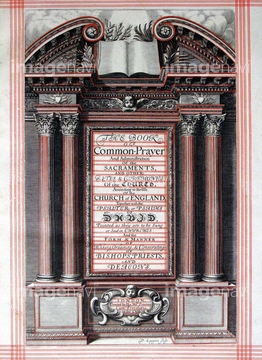 THE BOOK
OF
Common-Prayer
And Administration
OF THE
SACRAMENTS,
AND OTHER
Of the CHURCH,
According to the Use
OF THE
CHURCH of ENGLAND,
Together with the
PSALTER or PSALMS
OF
DAVID,
Pointed as they are to be Sung
or said in CHURCHES
And the
FORM & MANNER
of
BISHOPS, PRIESTS,
AND
DEACONS
LONDON